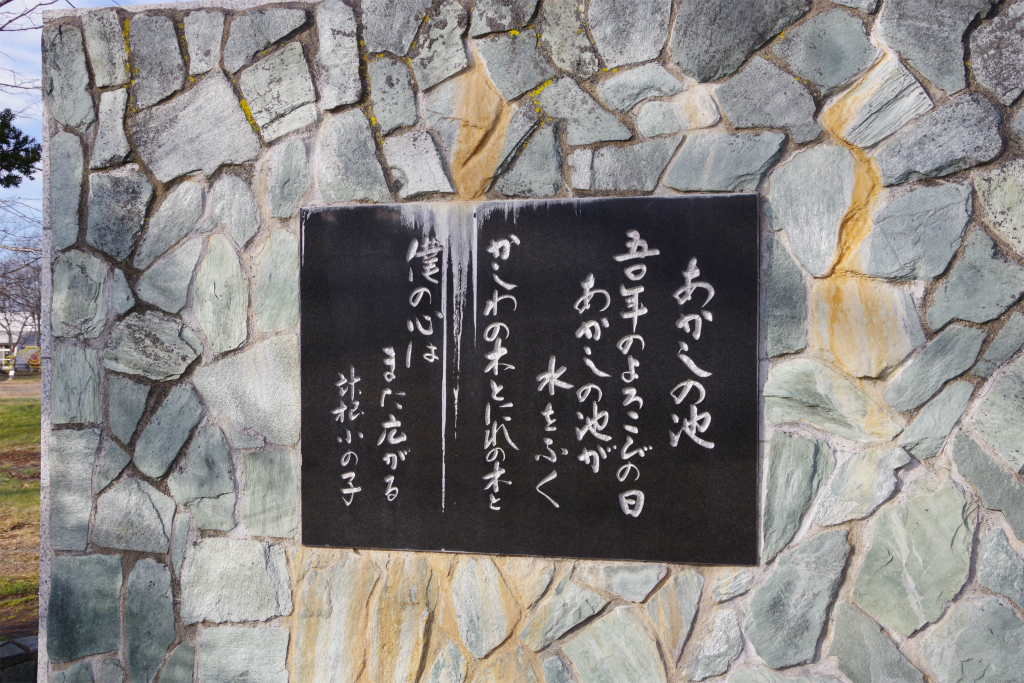 あかしの池
五〇年のよろこびの日
あかしの池が
水をふく
かしわの木とにれの木と
僕の心は
また広がる
計根小の子